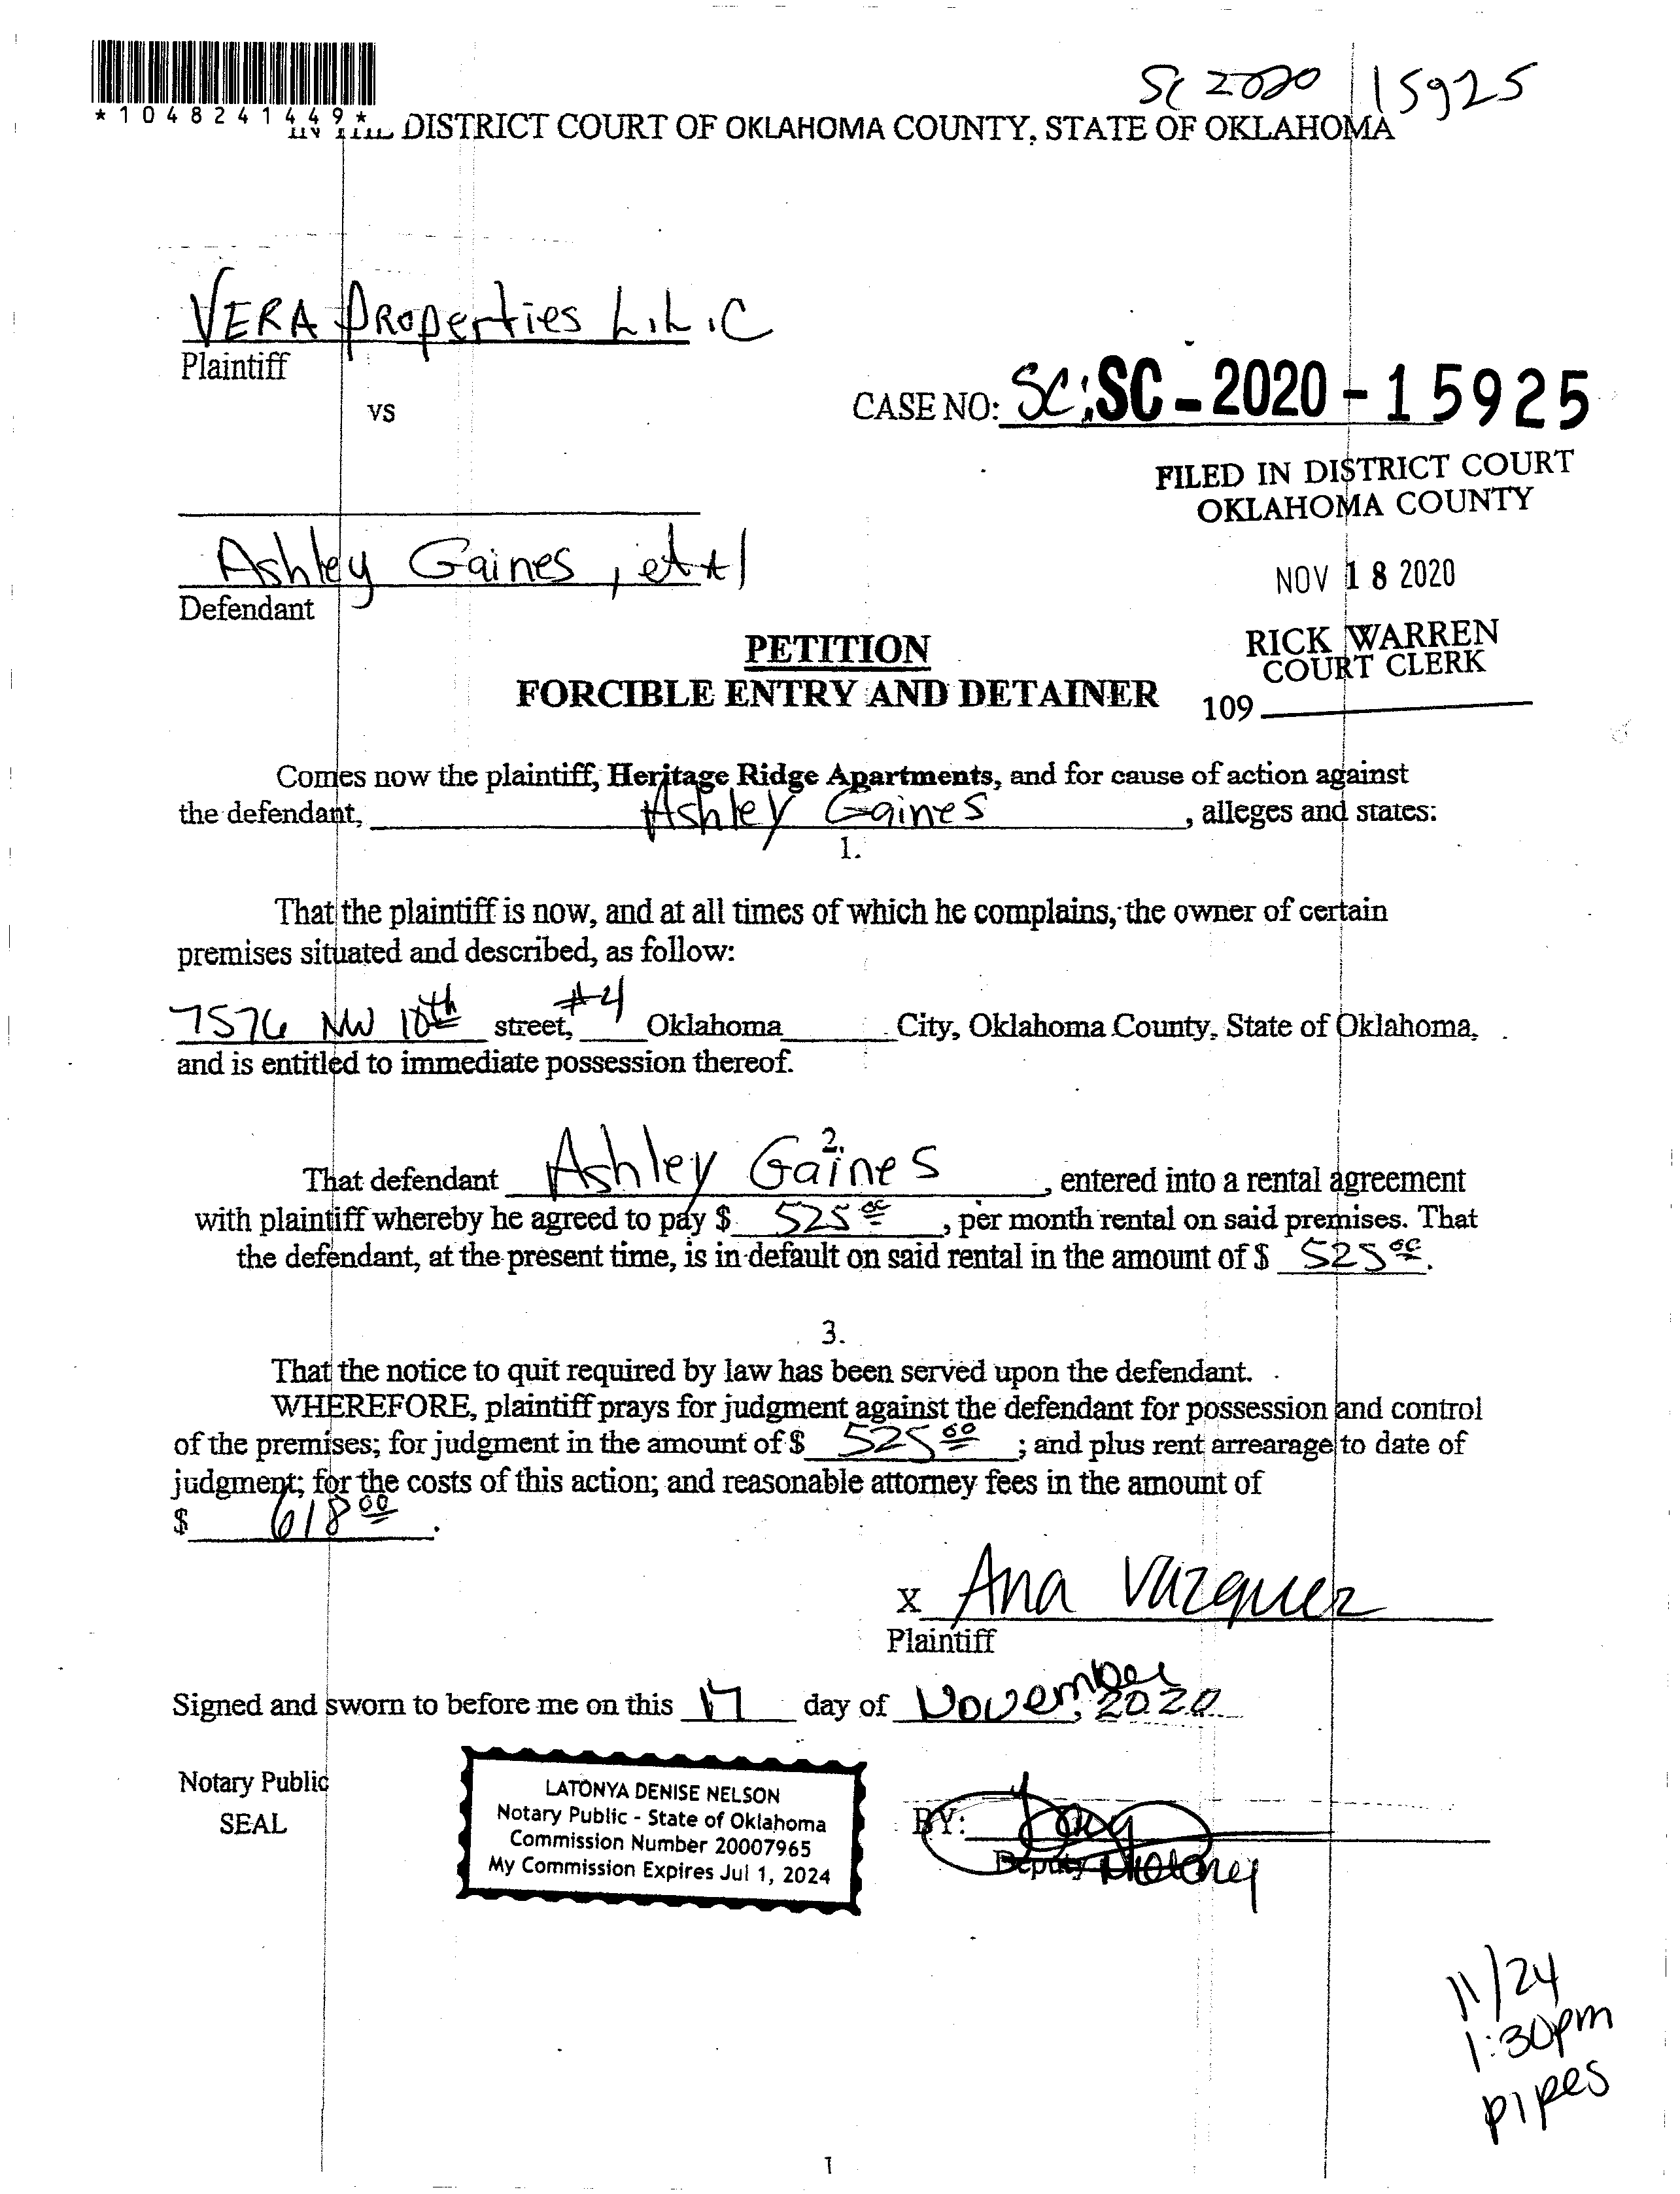 SC 2020 15925
*1048241449*
IN THE DISTRICT COURT OF OKLAHOMA COUNTY, STATE OF OKLAHOMA
VERA Properties L.L.C
Plaintiff
vs
CASE NO: SC: SC-2020-15925
FILED IN DISTRICT COURT
OKLAHOMA COUNTY
Ashley Gaines, et al
Defendant
NOV 18 2020
RICK WARREN
COURT CLERK
109
PETITION
FORCIBLE ENTRY AND DETAINER
Comes now the plaintiff, Heritage Ridge Apartments, and for cause of action against
the defendant, Ashley Gaines, alleges and states:
1.
That the plaintiff is now, and at all times of which he complains, the owner of certain
premises situated and described, as follow:
7576 NW 10th street, #4 Oklahoma City, Oklahoma County, State of Oklahoma,
and is entitled to immediate possession thereof.
2.
That defendant Ashley Gaines, entered into a rental agreement
with plaintiff whereby he agreed to pay $ 525 00, per month rental on said premises. That
the defendant, at the present time, is in default on said rental in the amount of $ 525 00.
3.
That the notice to quit required by law has been served upon the defendant.
WHEREFORE, plaintiff prays for judgment against the defendant for possession and control
of the premises; for judgment in the amount of $ 525 00; and plus rent arrearage to date of
judgment; for the costs of this action; and reasonable attorney fees in the amount of
$ 618 00.
X Ana Vazquez
Plaintiff
Signed and sworn to before me on this 17 day of November, 2020
Notary Public
SEAL
LATONYA DENISE NELSON
Notary Public - State of Oklahoma
Commission Number 20007965
My Commission Expires Jul 1, 2024
BY:
Deputy Notary
11/24
1:30pm
pipes
1